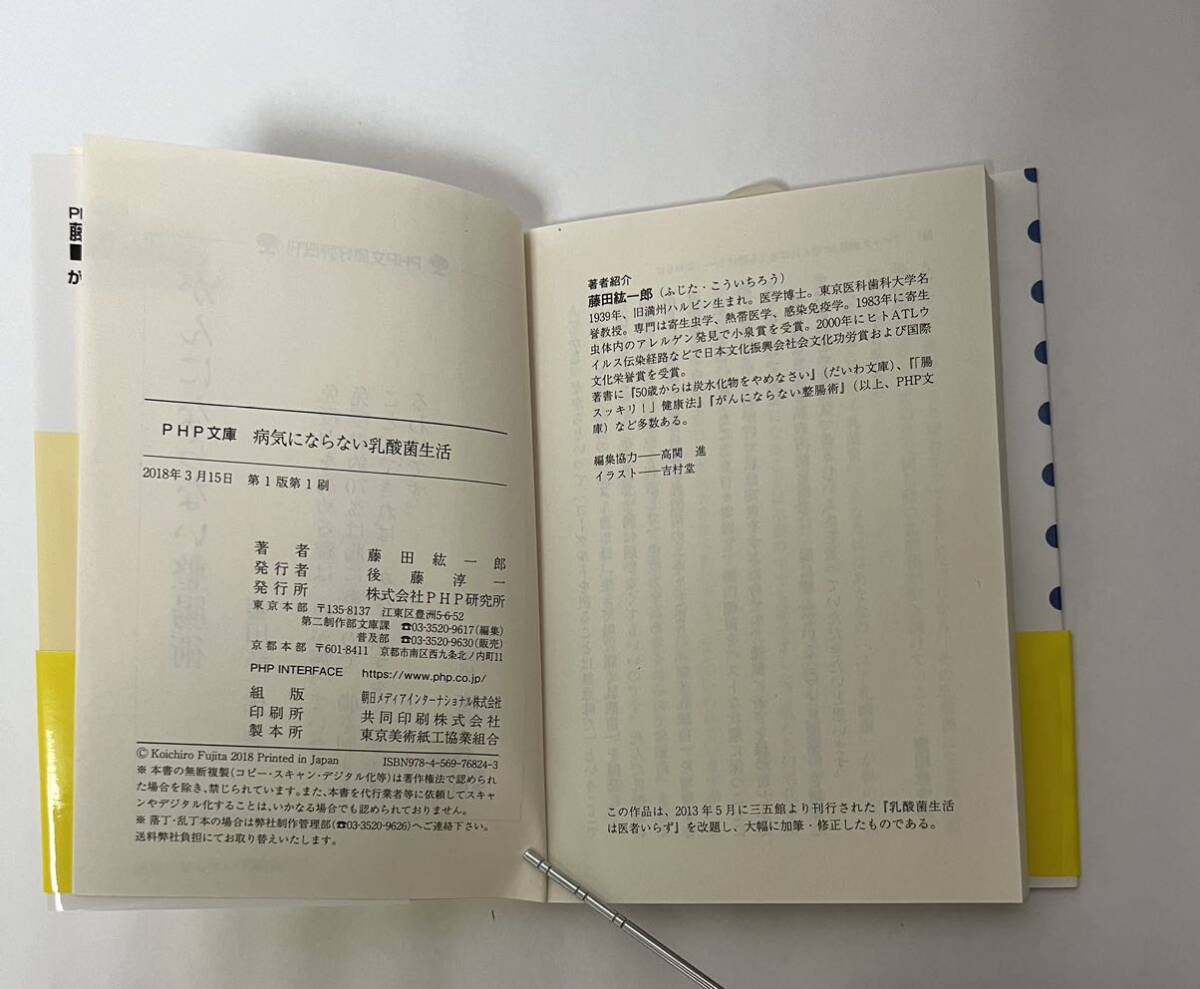 PHP文庫 病気にならない乳酸菌生活
2018年3月15日 第1版第1刷
著者 藤田紘一郎
発行者 後藤淳一
発行所 株式会社PHP研究所
東京本部 〒135-8137 江東区豊洲5-6-52
第二制作部文庫課 ☎03-3520-9617(編集)
普及部 ☎03-3520-9630(販売)
京都本部 〒601-8411 京都市南区西九条北ノ内町11
PHP INTERFACE https://www.php.co.jp/
組版 朝日メディアインターナショナル株式会社
印刷所 共同印刷株式会社
製本所 東京美術紙工協業組合
© Koichiro Fujita 2018 Printed in Japan ISBN978-4-569-76824-3
※本書の無断複製(コピー・スキャン・デジタル化等)は著作権法で認められ
た場合を除き、禁じられています。また、本書を代行業者等に依頼してスキャ
ンやデジタル化することは、いかなる場合でも認められておりません。
※落丁・乱丁本の場合は弊社制作管理部(☎03-3520-9626)へご連絡下さい。
送料弊社負担にてお取り替えいたします。
著者紹介
藤田紘一郎(ふじた・こういちろう)
1939年、旧満州ハルビン生まれ。医学博士。東京医科歯科大学名
誉教授。専門は寄生虫学、熱帯医学、感染免疫学。1983年に寄生
虫体内のアレルゲン発見で小泉賞を受賞。2000年にヒトATLウ
イルス伝染経路などで日本文化振興会社会文化功労賞および国際
文化栄誉賞を受賞。
著書に『50歳からは炭水化物をやめなさい』(だいわ文庫)、『「腸
スッキリ!」健康法』『がんにならない整腸術』(以上、PHP文
庫)など多数ある。
編集協力――高関 進
イラスト――吉村堂
この作品は、2013年5月に三五館より刊行された『乳酸菌生活
は医者いらず』を改題し、大幅に加筆・修正したものである。